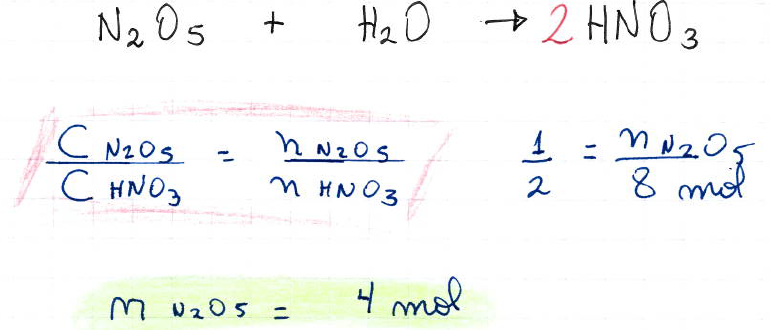 N₂O₅ + H₂O → 2 HNO₃
C N₂O₅ / C HNO₃ = n N₂O₅ / n HNO₃    1/2 = n N₂O₅ / 8 mol
n N₂O₅ = 4 mol